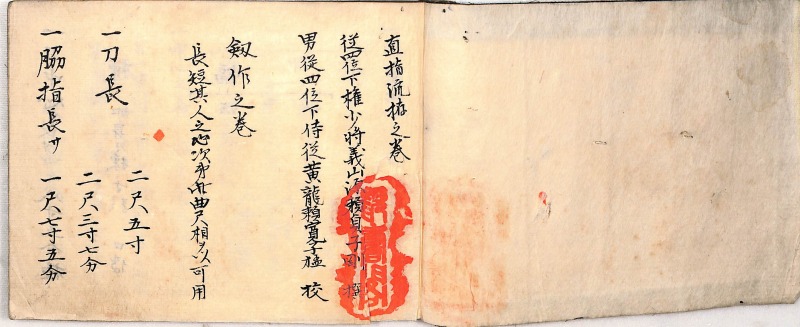 直指流極之巻
従四位下権少将義山源頼貞子剛 撰
男従四位下侍従黄龍頼寛子猛 校
剱作之巻
長短其人之心次第而曲尺相応可用
一刀長
二尺五寸
二尺三寸七分
一脇指長サ
一尺七寸五分